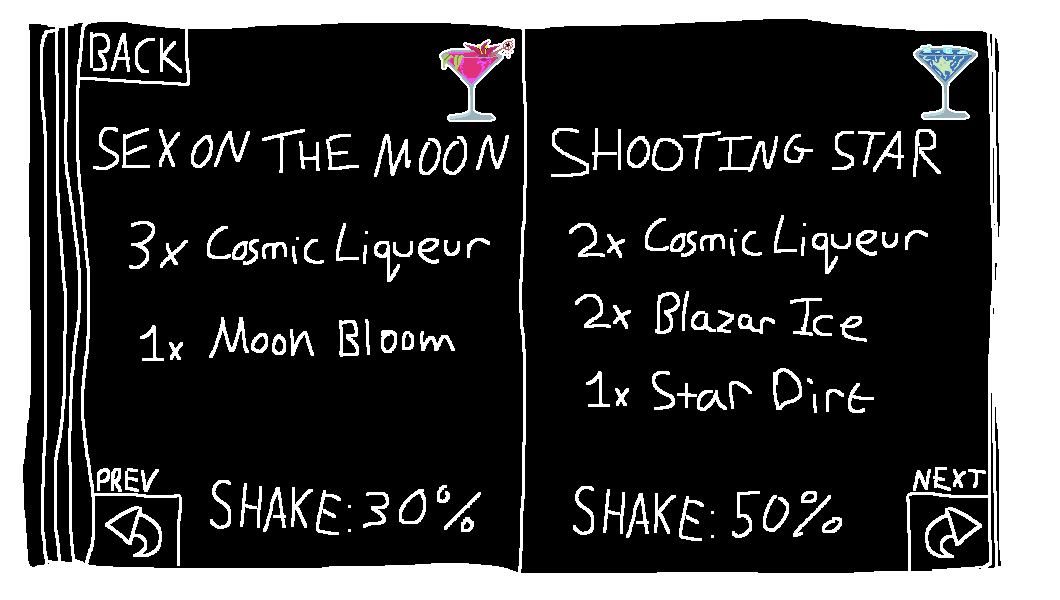 BACK
SEX ON THE MOON
3x Cosmic Liqueur
1x Moon Bloom
SHAKE: 30%
PREV
SHOOTING STAR
2x Cosmic Liqueur
2x Blazar Ice
1x Star Dirt
SHAKE: 50%
NEXT